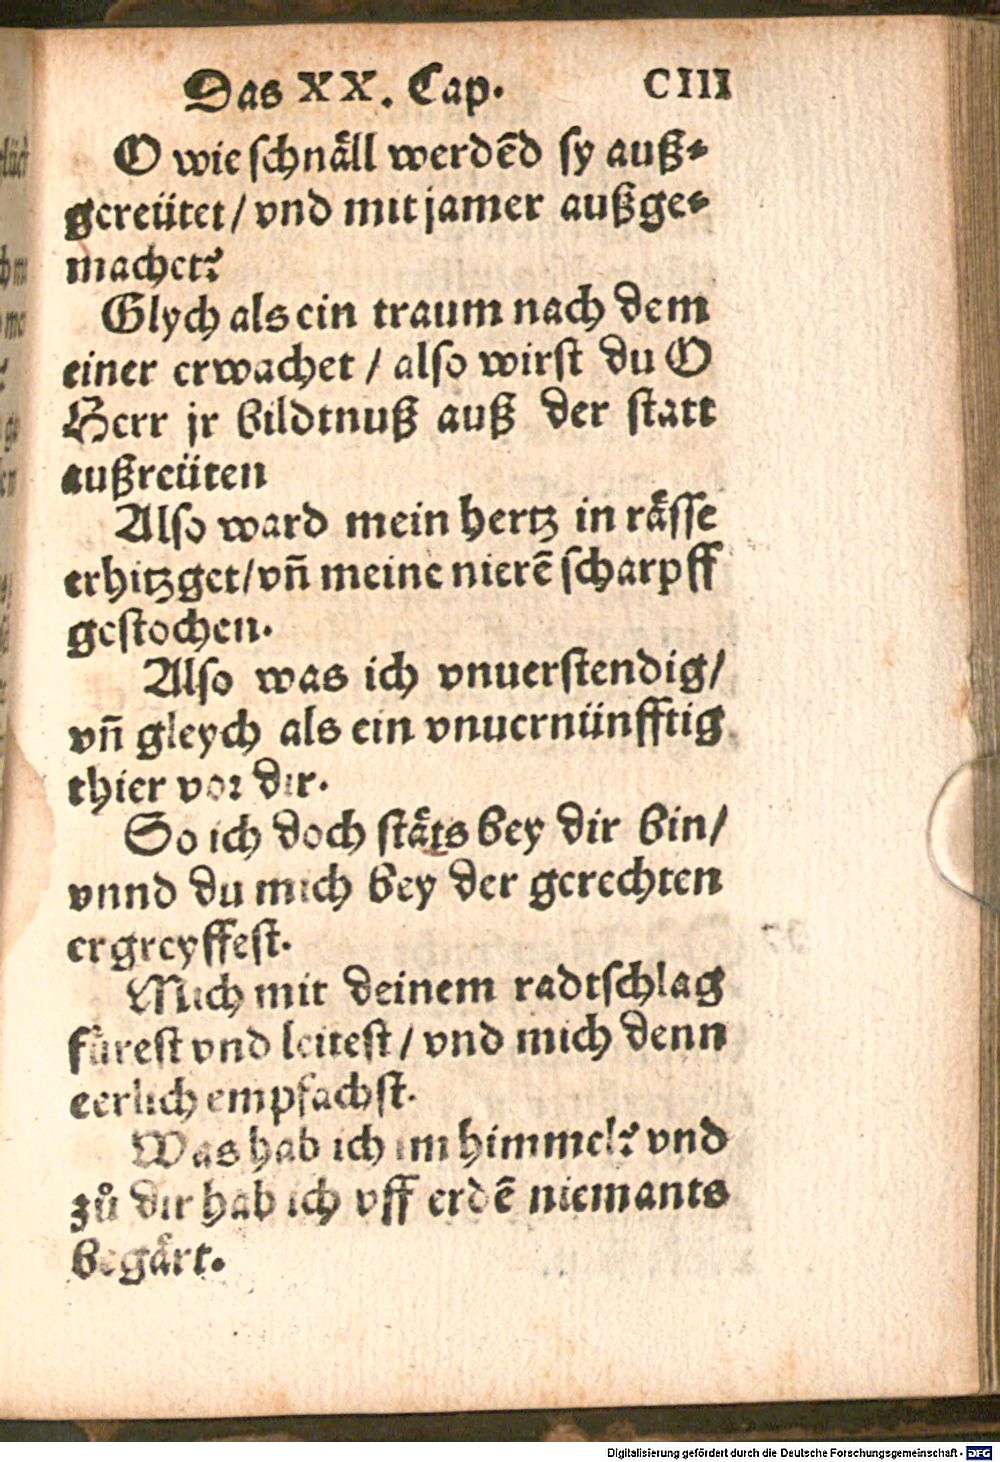 Das XX. Cap. CIII
O wie schnåll werdẽd sy auß⸗
gereütet / vnd mit jamer außge⸗
machet?
Glych als ein traum nach dem
einer erwachet / also wirst du O
Herr jr bildtnuß auß der statt
außreüten
Also ward mein hertz in råsse
erhitzget / vñ meine nierẽ scharpff
gestochen.
Also was ich vnuerstendig /
vñ gleych als ein vnuernünfftig
thier vor dir.
So ich doch ståts bey dir bin /
vnnd du mich bey der gerechten
ergreyffest.
Mich mit deinem radtschlag
fůrest vnd leitest / vnd mich denn
eerlich empfachst.
Was hab ich im himmel? vnd
zů dir hab ich vff erdẽ niemants
begårt.
Digitalisierung gefördert durch die Deutsche Forschungsgemeinschaft - DFG